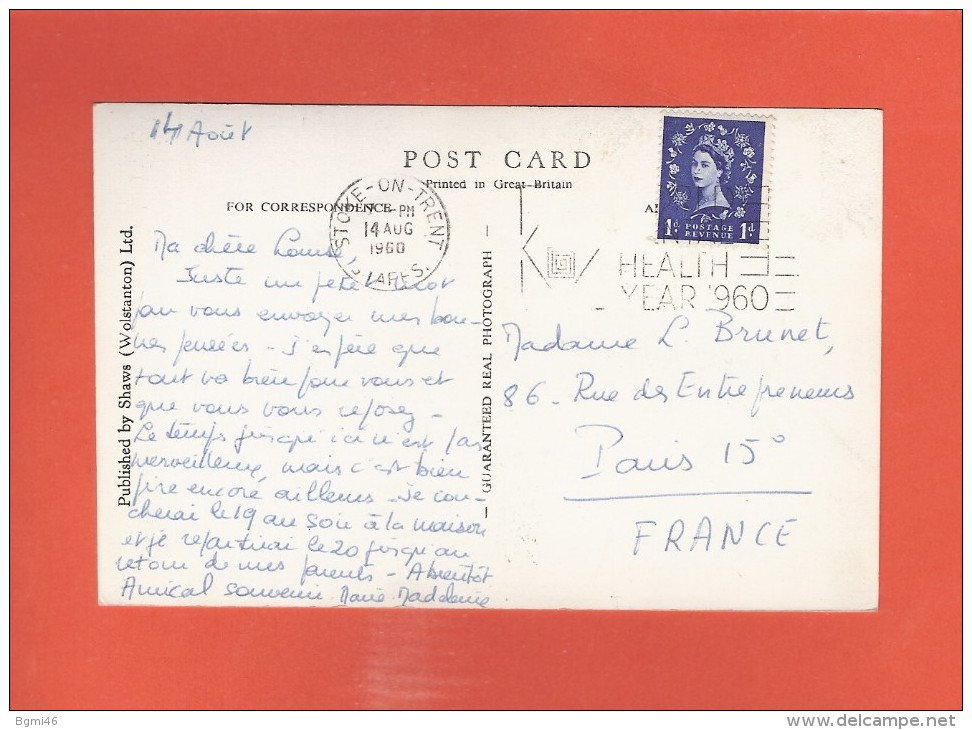 14 Août
POST CARD
Printed in Great Britain
FOR CORRESPONDENCE
STOKE-ON-TRENT
PM
14 AUG
1960
STAFFS.
1d POSTAGE REVENUE 1d
HEALTH
YEAR 1960
Published by Shaws (Wolstanton) Ltd.
GUARANTEED REAL PHOTOGRAPH
Ma chère Louise
Juste un petit mot
pour vous envoyer mes bon-
nes pensées - J'espère que
tout va bien pour vous et
que vous vous reposez -
Le temps jusqu'ici n'est pas
merveilleux, mais c'est bien
pire encore ailleurs - Je cou-
cherai le 19 au soir à la maison
et je repartirai le 20 jusqu'au
retour de mes parents - A bientôt
Amical souvenir Marie Madeleine
Madame L. Brunet,
86 - Rue des Entrepreneurs
Paris 15°
FRANCE
Bgmi46
www.delcampe.net